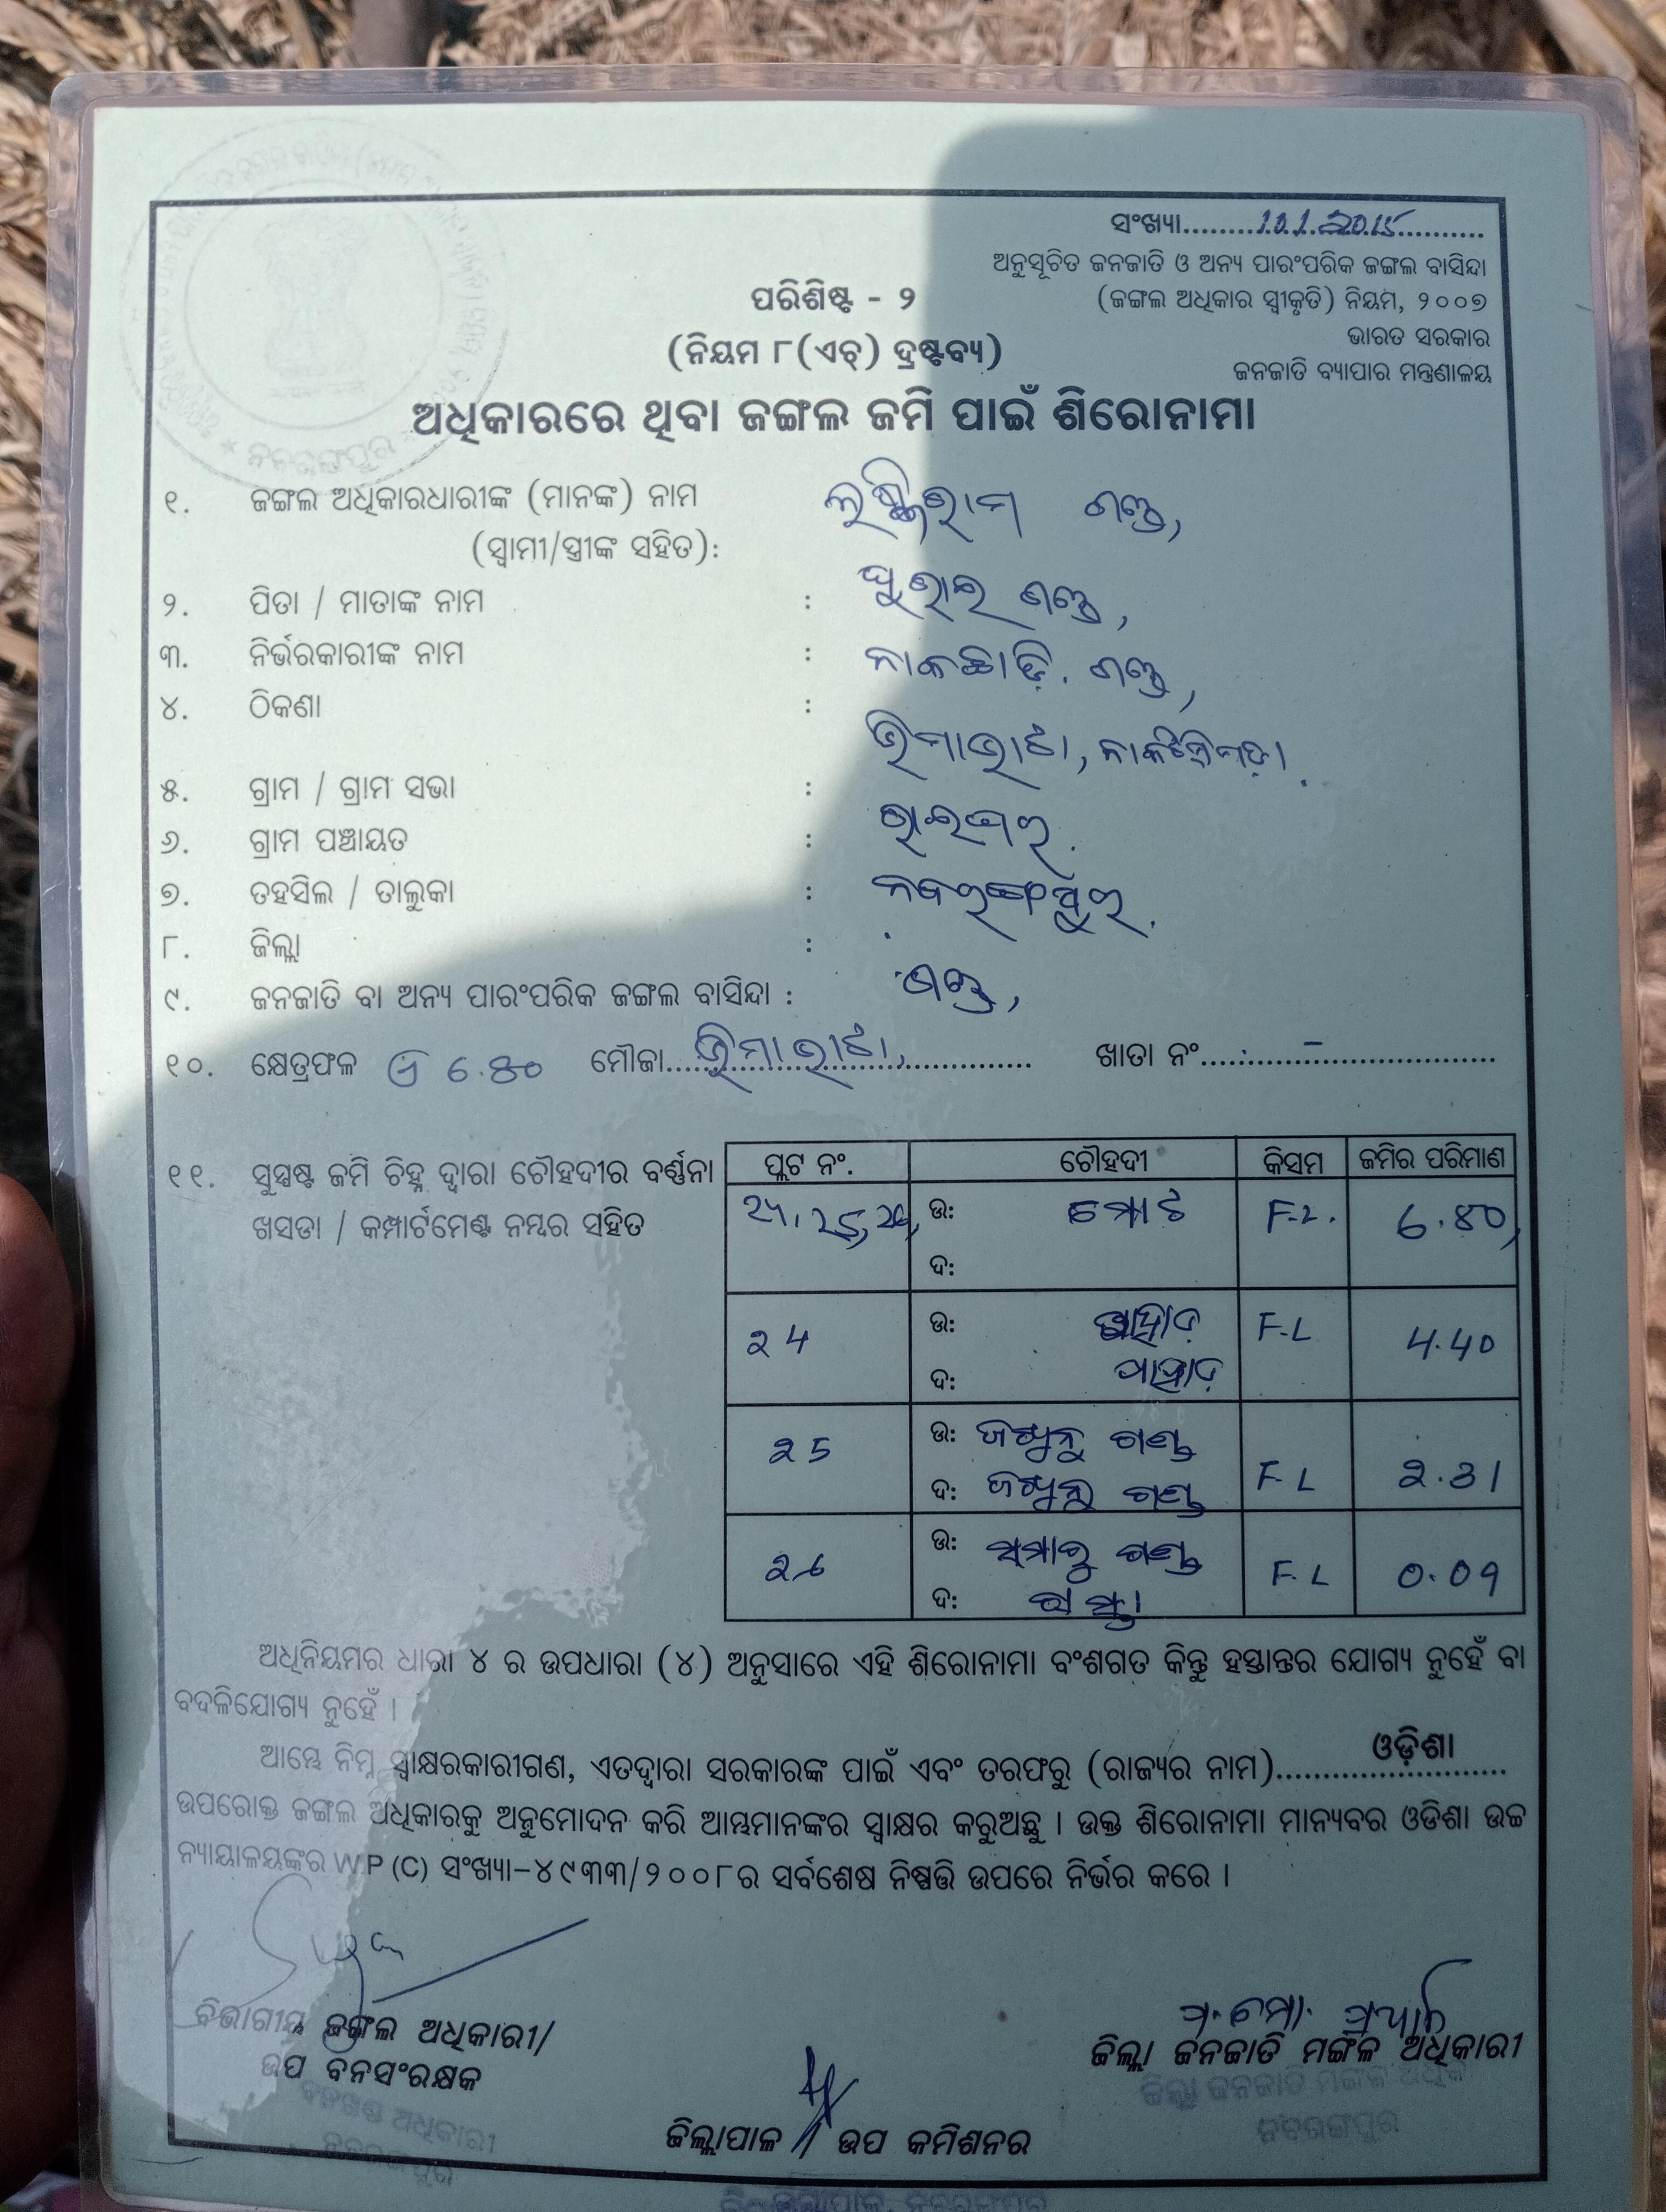 ସଂଖ୍ୟା............10.1.2015............
ଅନୁସୂଚିତ ଜନଜାତି ଓ ଅନ୍ୟ ପାରଂପରିକ ଜଙ୍ଗଲ ବାସିନ୍ଦା
(ଜଙ୍ଗଲ ଅଧିକାର ସ୍ୱୀକୃତି) ନିୟମ, ୨୦୦୭
ଭାରତ ସରକାର
ଜନଜାତି ବ୍ୟାପାର ମନ୍ତ୍ରଣାଳୟ
ପରିଶିଷ୍ଟ - ୨
(ନିୟମ ୮(ଏଚ୍) ଦ୍ରଷ୍ଟବ୍ୟ)
ଅଧିକାରରେ ଥିବା ଜଙ୍ଗଲ ଜମି ପାଇଁ ଶିରୋନାମା
୧. ଜଙ୍ଗଲ ଅଧିକାରଧାରୀଙ୍କ (ମାନଙ୍କ) ନାମ ଗଣ୍ଡ,
(ସ୍ୱାମୀ/ସ୍ତ୍ରୀଙ୍କ ସହିତ):
୨. ପିତା / ମାତାଙ୍କ ନାମ : ଗଣ୍ଡ,
୩. ନିର୍ଭରକାରୀଙ୍କ ନାମ : ନାକଛାଡ଼ି. ଗଣ୍ଡ,
୪. ଠିକଣା :
୫. ଗ୍ରାମ / ଗ୍ରାମ ସଭା : ଭିମାଭାଟା,
୬. ଗ୍ରାମ ପଞ୍ଚାୟତ :
୭. ତହସିଲ / ତାଲୁକା : ରାଇଘର.
୮. ଜିଲ୍ଲା : ନବରଙ୍ଗପୁର.
୯. ଜନଜାତି ବା ଅନ୍ୟ ପାରଂପରିକ ଜଙ୍ଗଲ ବାସିନ୍ଦା : ଗଣ୍ଡ,
୧୦. କ୍ଷେତ୍ରଫଳ 6.80 ମୌଜା.....ଭିମାଭାଟା,..... ଖାତା ନଂ.....-.....
୧୧. ସୁସ୍ପଷ୍ଟ ଜମି ଚିହ୍ନ ଦ୍ୱାରା ଚୌହଦୀର ବର୍ଣ୍ଣନା
ଖସଡା / କମ୍ପାର୍ଟମେଣ୍ଟ ନମ୍ବର ସହିତ
ପ୍ଲଟ ନଂ. ଚୌହଦୀ କିସମ ଜମିର ପରିମାଣ
24, 25, 26, ଉ: ମୋଟ F.L. 6.80,
ଦ:
24 ଉ: ପାହାଡ଼ F.L 4.40
ଦ: ପାହାଡ଼
25 ଉ: ଗଣ୍ଡ F.L 2.31
ଦ: ଗଣ୍ଡ
26 ଉ: ସମାରୁ ଗଣ୍ଡ F.L 0.09
ଦ: ରାସ୍ତା
ଅଧିନିୟମର ଧାରା ୪ ର ଉପଧାରା (୪) ଅନୁସାରେ ଏହି ଶିରୋନାମା ବଂଶଗତ କିନ୍ତୁ ହସ୍ତାନ୍ତର ଯୋଗ୍ୟ ନୁହେଁ ବା
ବଦଳିଯୋଗ୍ୟ ନୁହେଁ ।
ଆମ୍ଭେ ନିମ୍ନ ସ୍ୱାକ୍ଷରକାରୀଗଣ, ଏତଦ୍ୱାରା ସରକାରଙ୍କ ପାଇଁ ଏବଂ ତରଫରୁ (ରାଜ୍ୟର ନାମ)......ଓଡ଼ିଶା......
ଉପରୋକ୍ତ ଜଙ୍ଗଲ ଅଧିକାରକୁ ଅନୁମୋଦନ କରି ଆମ୍ଭମାନଙ୍କର ସ୍ୱାକ୍ଷର କରୁଅଛୁ । ଉକ୍ତ ଶିରୋନାମା ମାନ୍ୟବର ଓଡିଶା ଉଚ୍ଚ
ନ୍ୟାୟାଳୟଙ୍କର W.P (C) ସଂଖ୍ୟା-୪୯୩୩/୨୦୦୮ର ସର୍ବଶେଷ ନିଷ୍ପତ୍ତି ଉପରେ ନିର୍ଭର କରେ ।
ବିଭାଗୀୟ ଜଙ୍ଗଲ ଅଧିକାରୀ/
ଉପ ବନସଂରକ୍ଷକ
ଜିଲ୍ଲା ଜନଜାତି ମଙ୍ଗଳ ଅଧିକାରୀ
ଜିଲ୍ଲା ଜନଜାତି ମଙ୍ଗଳ ଅଧିକାରୀ
ନବରଙ୍ଗପୁର
ବନଖଣ୍ଡ ଅଧିକାରୀ
ନବରଙ୍ଗପୁର
ଜିଲ୍ଲାପାଳ / ଉପ କମିଶନର
ଜିଲ୍ଲାପାଳ, ନବରଙ୍ଗପୁର